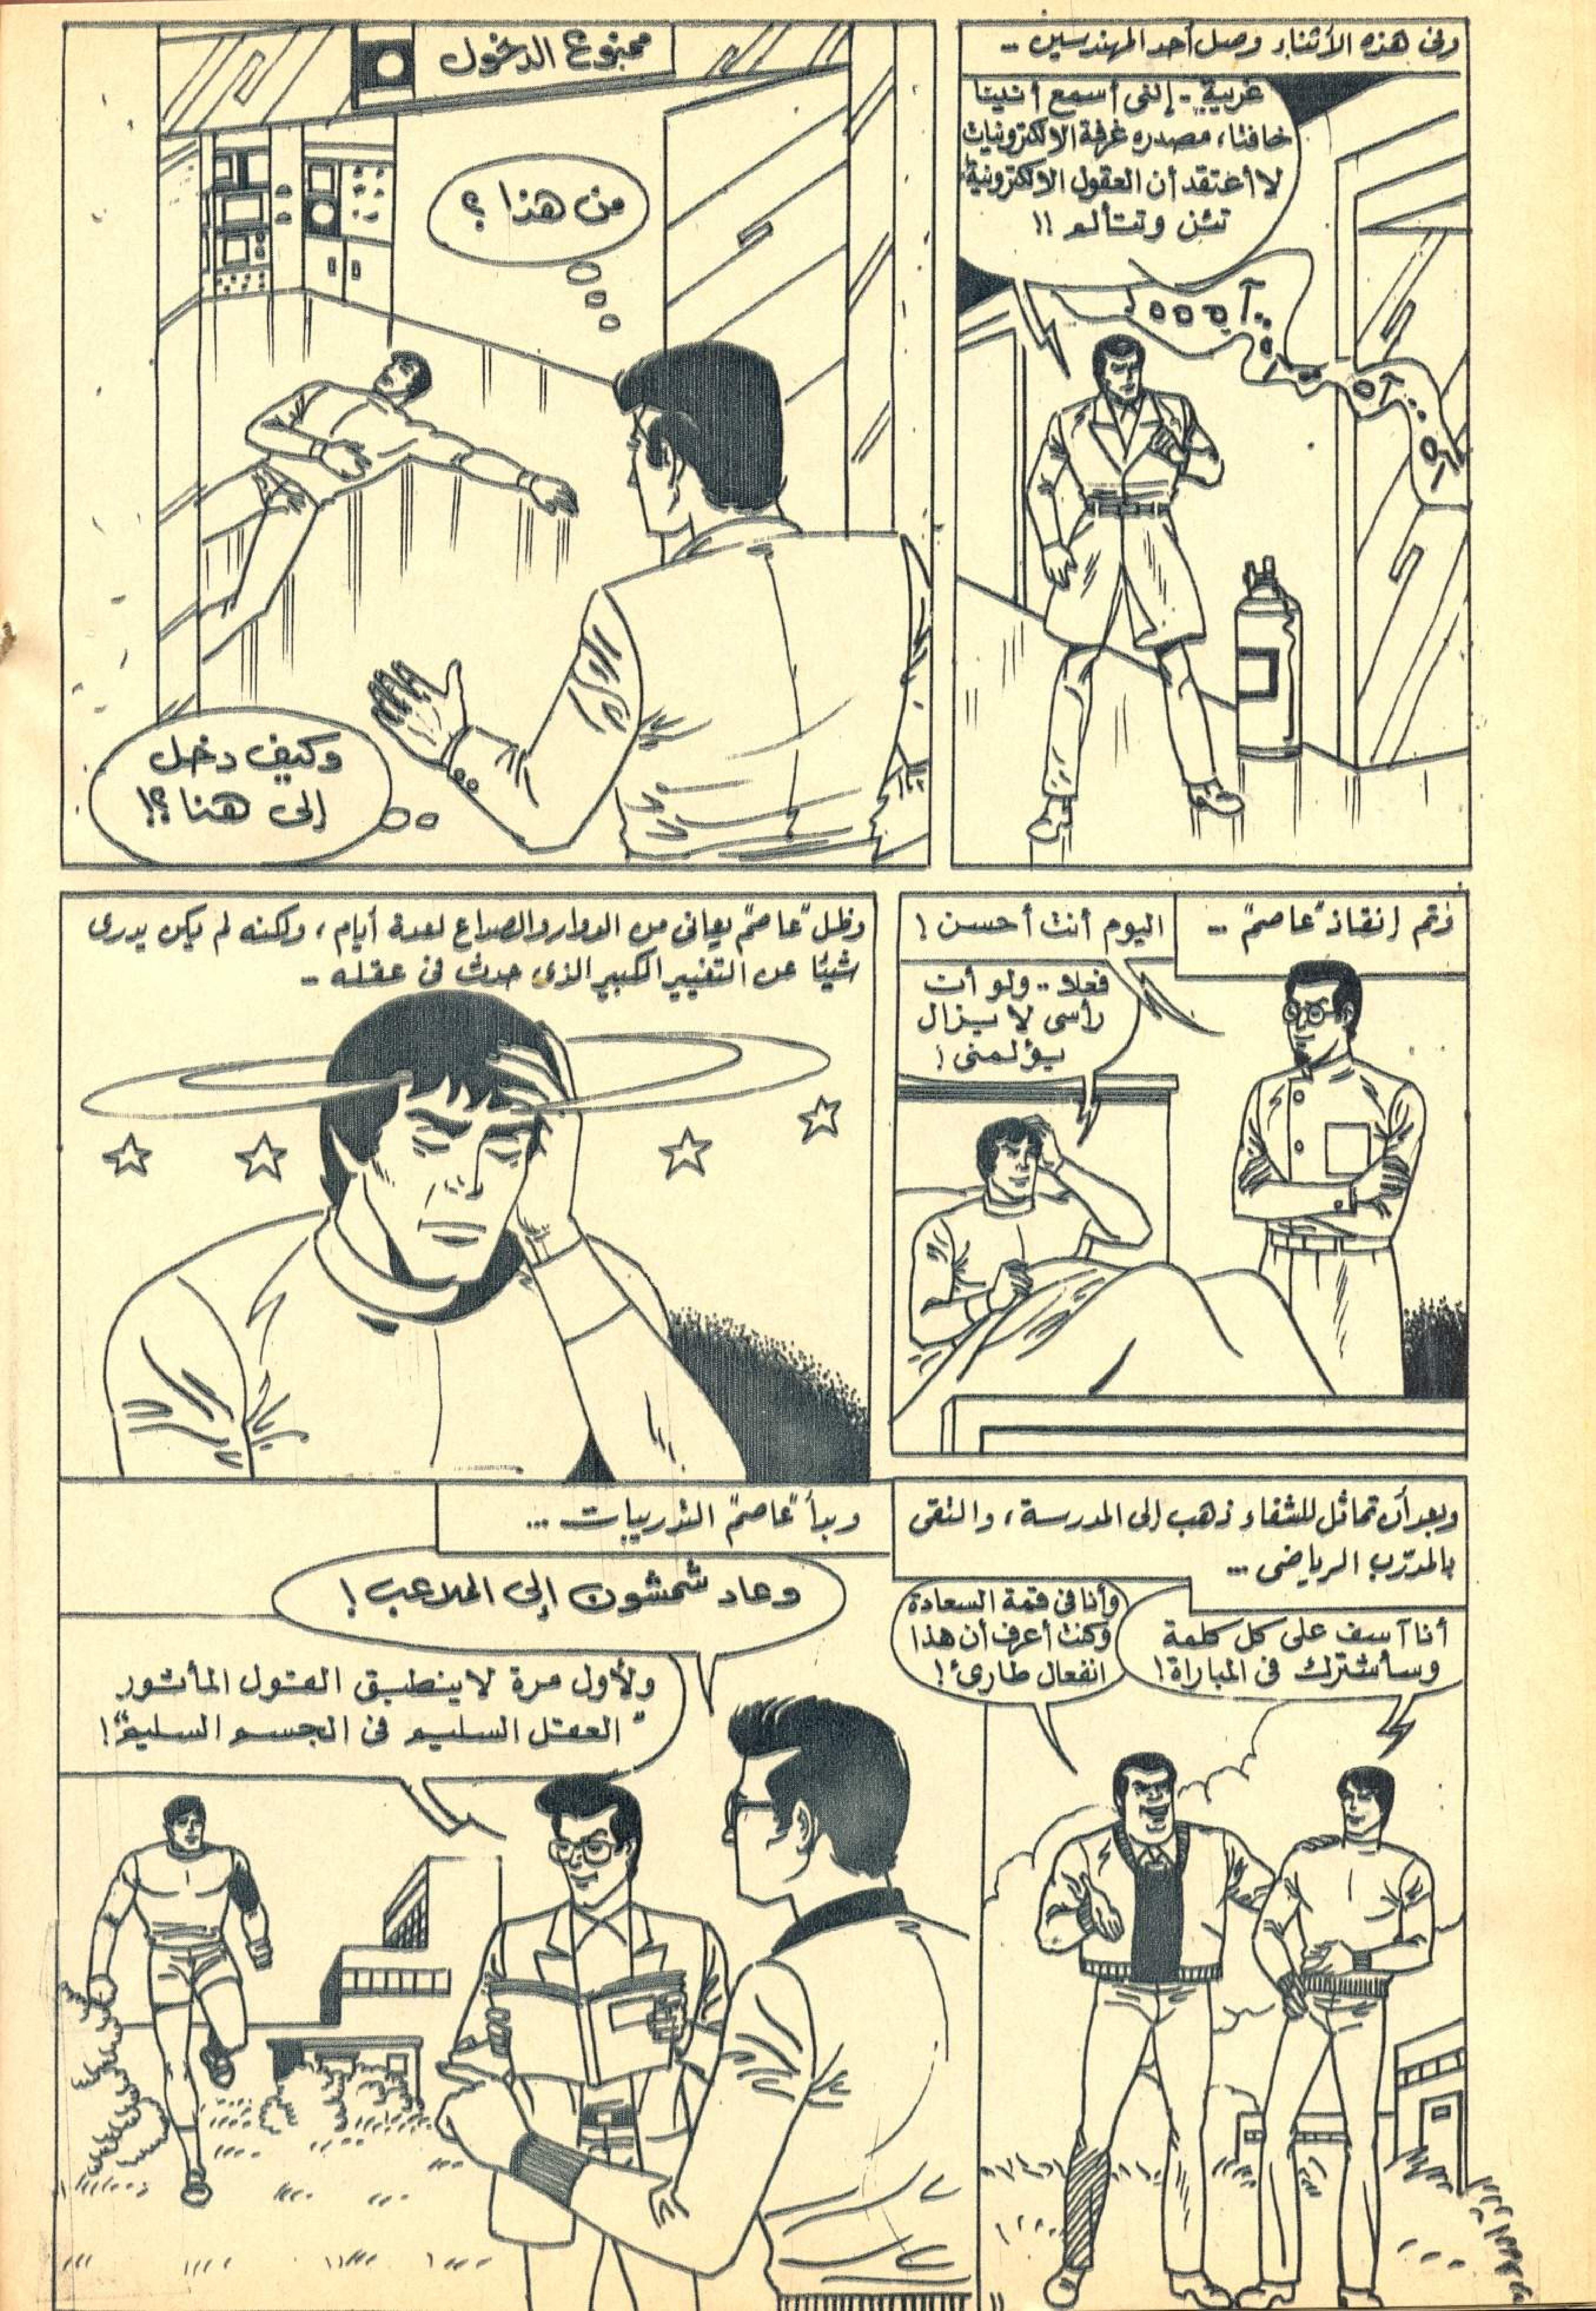 وفى هذه الأثناء وصل أحد المهندسين ..
غريبة .. إننى أسمع أنينا
خافتا، مصدره غرفة الالكترونيات
لا أعتقد أن العقول الالكترونية
تئن وتتألم !!
آ ه ه ه ه
آه
آه
ممنوع الدخول
من هذا ؟
وكيف دخل
إلى هنا ؟!
وتم إنقاذ "عاصم" ..
اليوم أنت أحسن !
فعلا .. ولو أن
رأسى لا يزال
يؤلمنى !
وظل "عاصم" يعانى من الدوار والصداع لعدة أيام ، ولكنه لم يكن يدرى
شيئا عن التغيير الكبير الذى حدث فى عقله ..
وبعد أن تماثل للشفاء ذهب إلى المدرسة ، والتقى
بالمدرّب الرياضى ...
أنا آسف على كل كلمة
وسأشترك فى المباراة !
وأنا فى قمة السعادة
وكنت أعرف أن هذا
انفعال طارئ !
وبدأ "عاصم" التدريبات ...
وعاد شمشون إلى الملاعب !
ولأول مرة لا ينطبق القول المأثور
"العقل السليم فى الجسم السليم" !